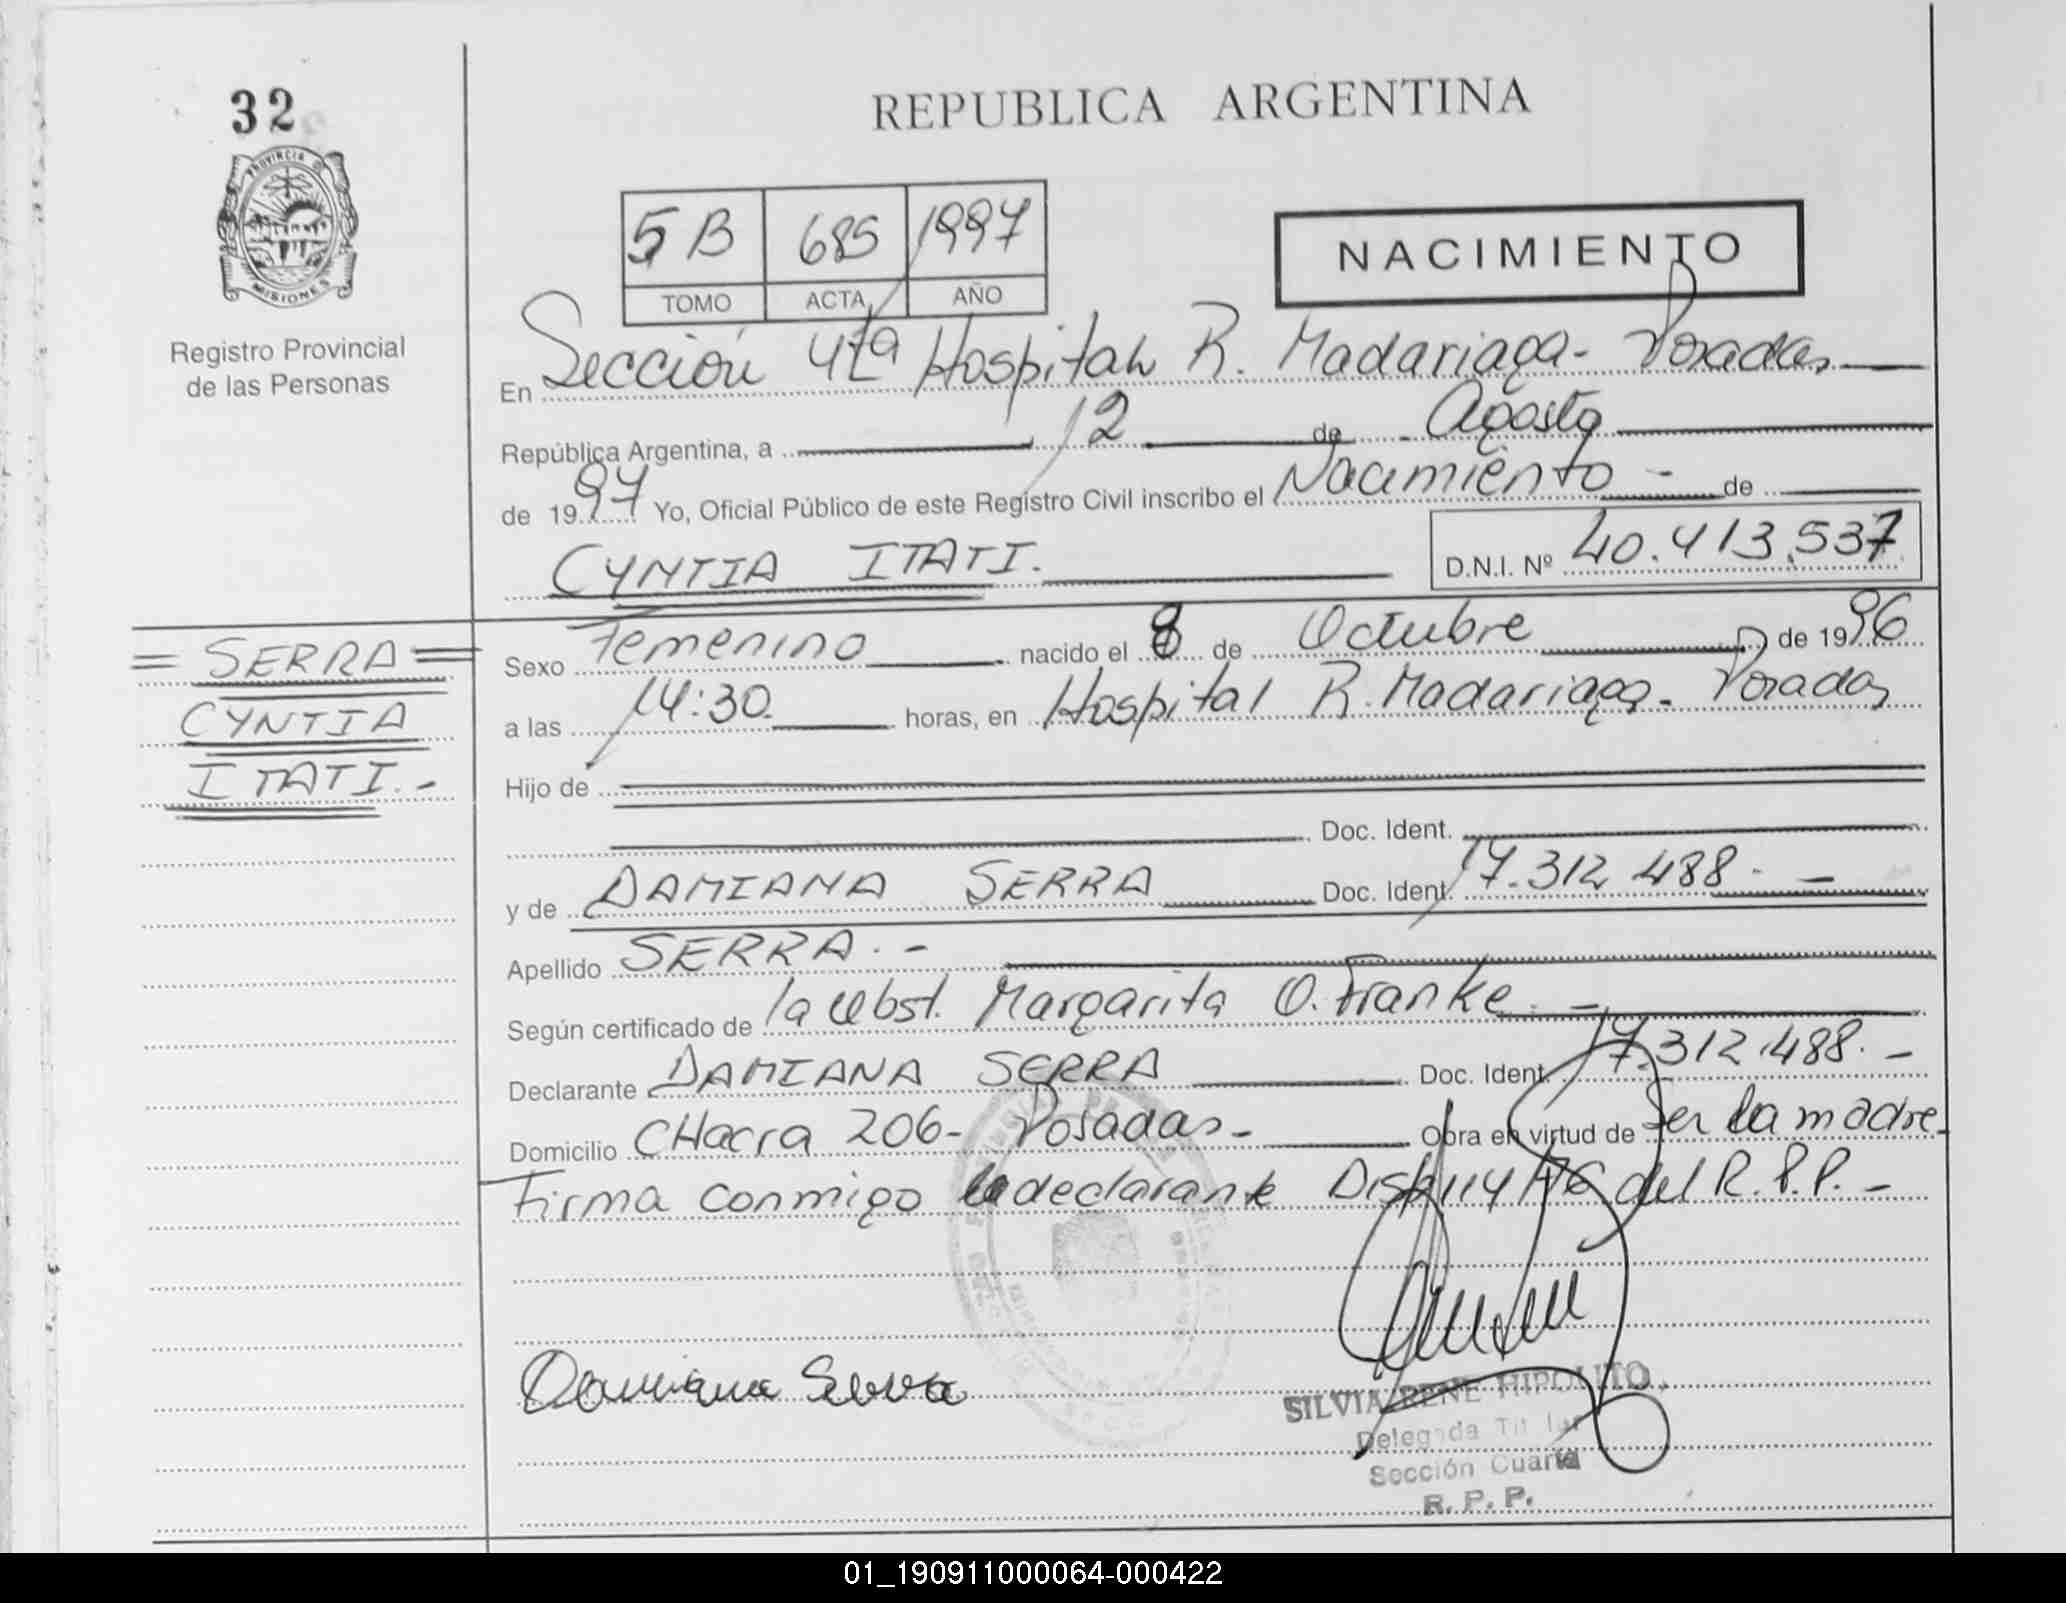 32
PROVINCIA D
MISIONES
Registro Provincial
de las Personas
REPUBLICA ARGENTINA
5 B 685 1997
TOMO ACTA AÑO
NACIMIENTO
En Sección 4ta Hospital R. Madariaga - Posadas
República Argentina, a 12 de Agosto
de 1997 Yo, Oficial Público de este Registro Civil inscribo el Nacimiento - de
CYNTIA ITATI.
D.N.I. Nº 40.413.537
= SERRA =
CYNTIA
ITATI.-
Sexo Femenino nacido el 8 de Octubre de 1996
a las 14:30 horas, en Hospital R. Madariaga - Posadas
Hijo de
Doc. Ident.
y de DAMIANA SERRA Doc. Ident. 17.312.488.-
Apellido SERRA.-
Según certificado de la Obst. Margarita O. Franke.-
Declarante DAMIANA SERRA Doc. Ident. 17.312.488.-
Domicilio CHacra 206- Posadas- Obra en virtud de Ser la madre-
Firma conmigo la declarante del R.P.P.-
Damiana Serra
SILVIA RENE HIPOLITO
Delegada Titular
Sección Cuarta
R. P. P.
01_190911000064-000422